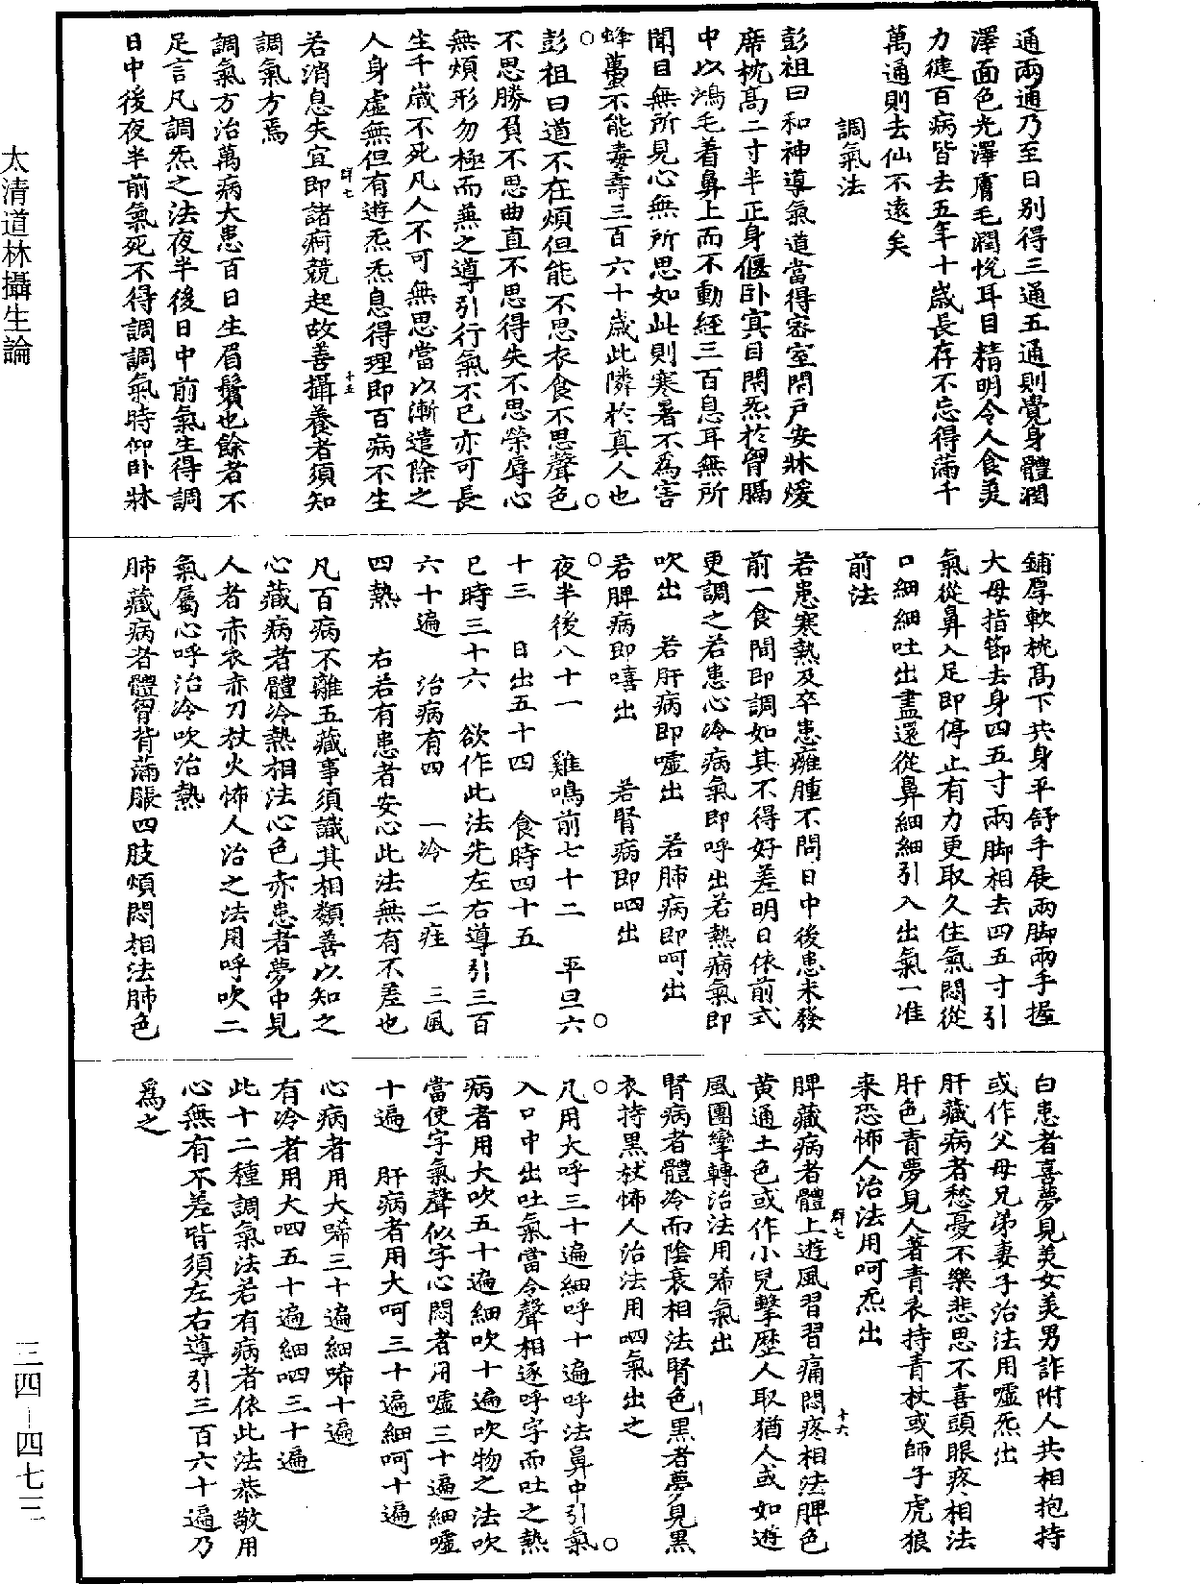 通兩通乃至日別得三通五通則覺身體潤
澤面色光澤膚毛潤悅耳目精明令人食美
力徤百病皆去五年十歲長存不忘得滿千
萬通則去仙不遠矣
調氣法
彭祖曰和神導氣道當得密室閇戶安牀煖
席枕髙二寸半正身偃卧冥目閇炁於胷膈
中以鴻毛着鼻上而不動經三百息耳無所
聞目無所見心無所思如此則寒暑不爲害
蜂蠆不能毒壽三百六十歲此隣於真人也
○ ○
彭祖曰道不在煩但能不思衣食不思聲色
不思勝負不思曲直不思得失不思榮辱心
無煩形勿極而兼之導引行氣不已亦可長
生千歲不死凡人不可無思當以漸遣除之
人身虛無但有遊炁炁息得理即百病不生
群七 十五
若消息失宜即諸疴競起故善攝養者須知
調氣方焉
調氣方治萬病大患百日生眉鬚也餘者不
足言凡調炁之法夜半後日中前氣生得調
日中後夜半前氣死不得調調氣時仰卧牀
鋪厚軟枕髙下共身平舒手展兩脚兩手握
大母指節去身四五寸兩脚相去四五寸引
氣從鼻入足即停止有力更取久住氣悶從
口細細吐出盡還從鼻細細引入出氣一准
前法
若患寒熱及卒患癰腫不問日中後患未發
前一食間即調如其不得好差明日依前式
更調之若患心冷病氣即呼出若熱病氣即
吹出 若肝病即噓出 若肺病即呵出
若脾病即嘻出 若腎病即呬出
○ ○
夜半後八十一 雞鳴前七十二 平旦六
十三 日出五十四 食時四十五
巳時三十六 欲作此法先左右導引三百
六十遍 治病有四 一冷 二疰 三風
四熱 右若有患者安心此法無有不差也
凡百病不離五藏事須識其相類善以知之
心藏病者體冷熱相法心色赤患者夢中見
人者赤衣赤刀杖火怖人治之法用呼吹二
氣屬心呼治冷吹治熱
肺藏病者體胷背滿脹四肢煩悶相法肺色
白患者喜夢見美女美男詐附人共相抱持
或作父母兄弟妻子治法用噓炁出
肝藏病者愁憂不樂悲思不喜頭眼疼相法
肝色青夢見人著青衣持青杖或師子虎狼
来恐怖人治法用呵炁出
群七 十六
脾藏病者體上遊風習習痛悶疼相法脾色
黃通土色或作小兒擊歷人取猶人或如遊
風團欒轉治法用唏氣出
腎病者體冷而陰衰相法腎色黑者夢見黑
衣持黑杖怖人治法用呬氣出之
○ ○
凡用大呼三十遍細呼十遍呼法鼻中引氣
入口中出吐氣當令聲相逐呼字而吐之熱
病者用大吹五十遍細吹十遍吹物之法吹
當使字氣聲似字心悶者用噓三十遍細噓
十遍 肝病者用大呵三十遍細呵十遍
心病者用大唏三十遍細唏十遍
有冷者用大呬五十遍細呬三十遍
此十二種調氣法若有病者依此法恭敬用
心無有不差皆須左右導引三百六十遍乃
爲之
太清道林攝生論
三四–四七三